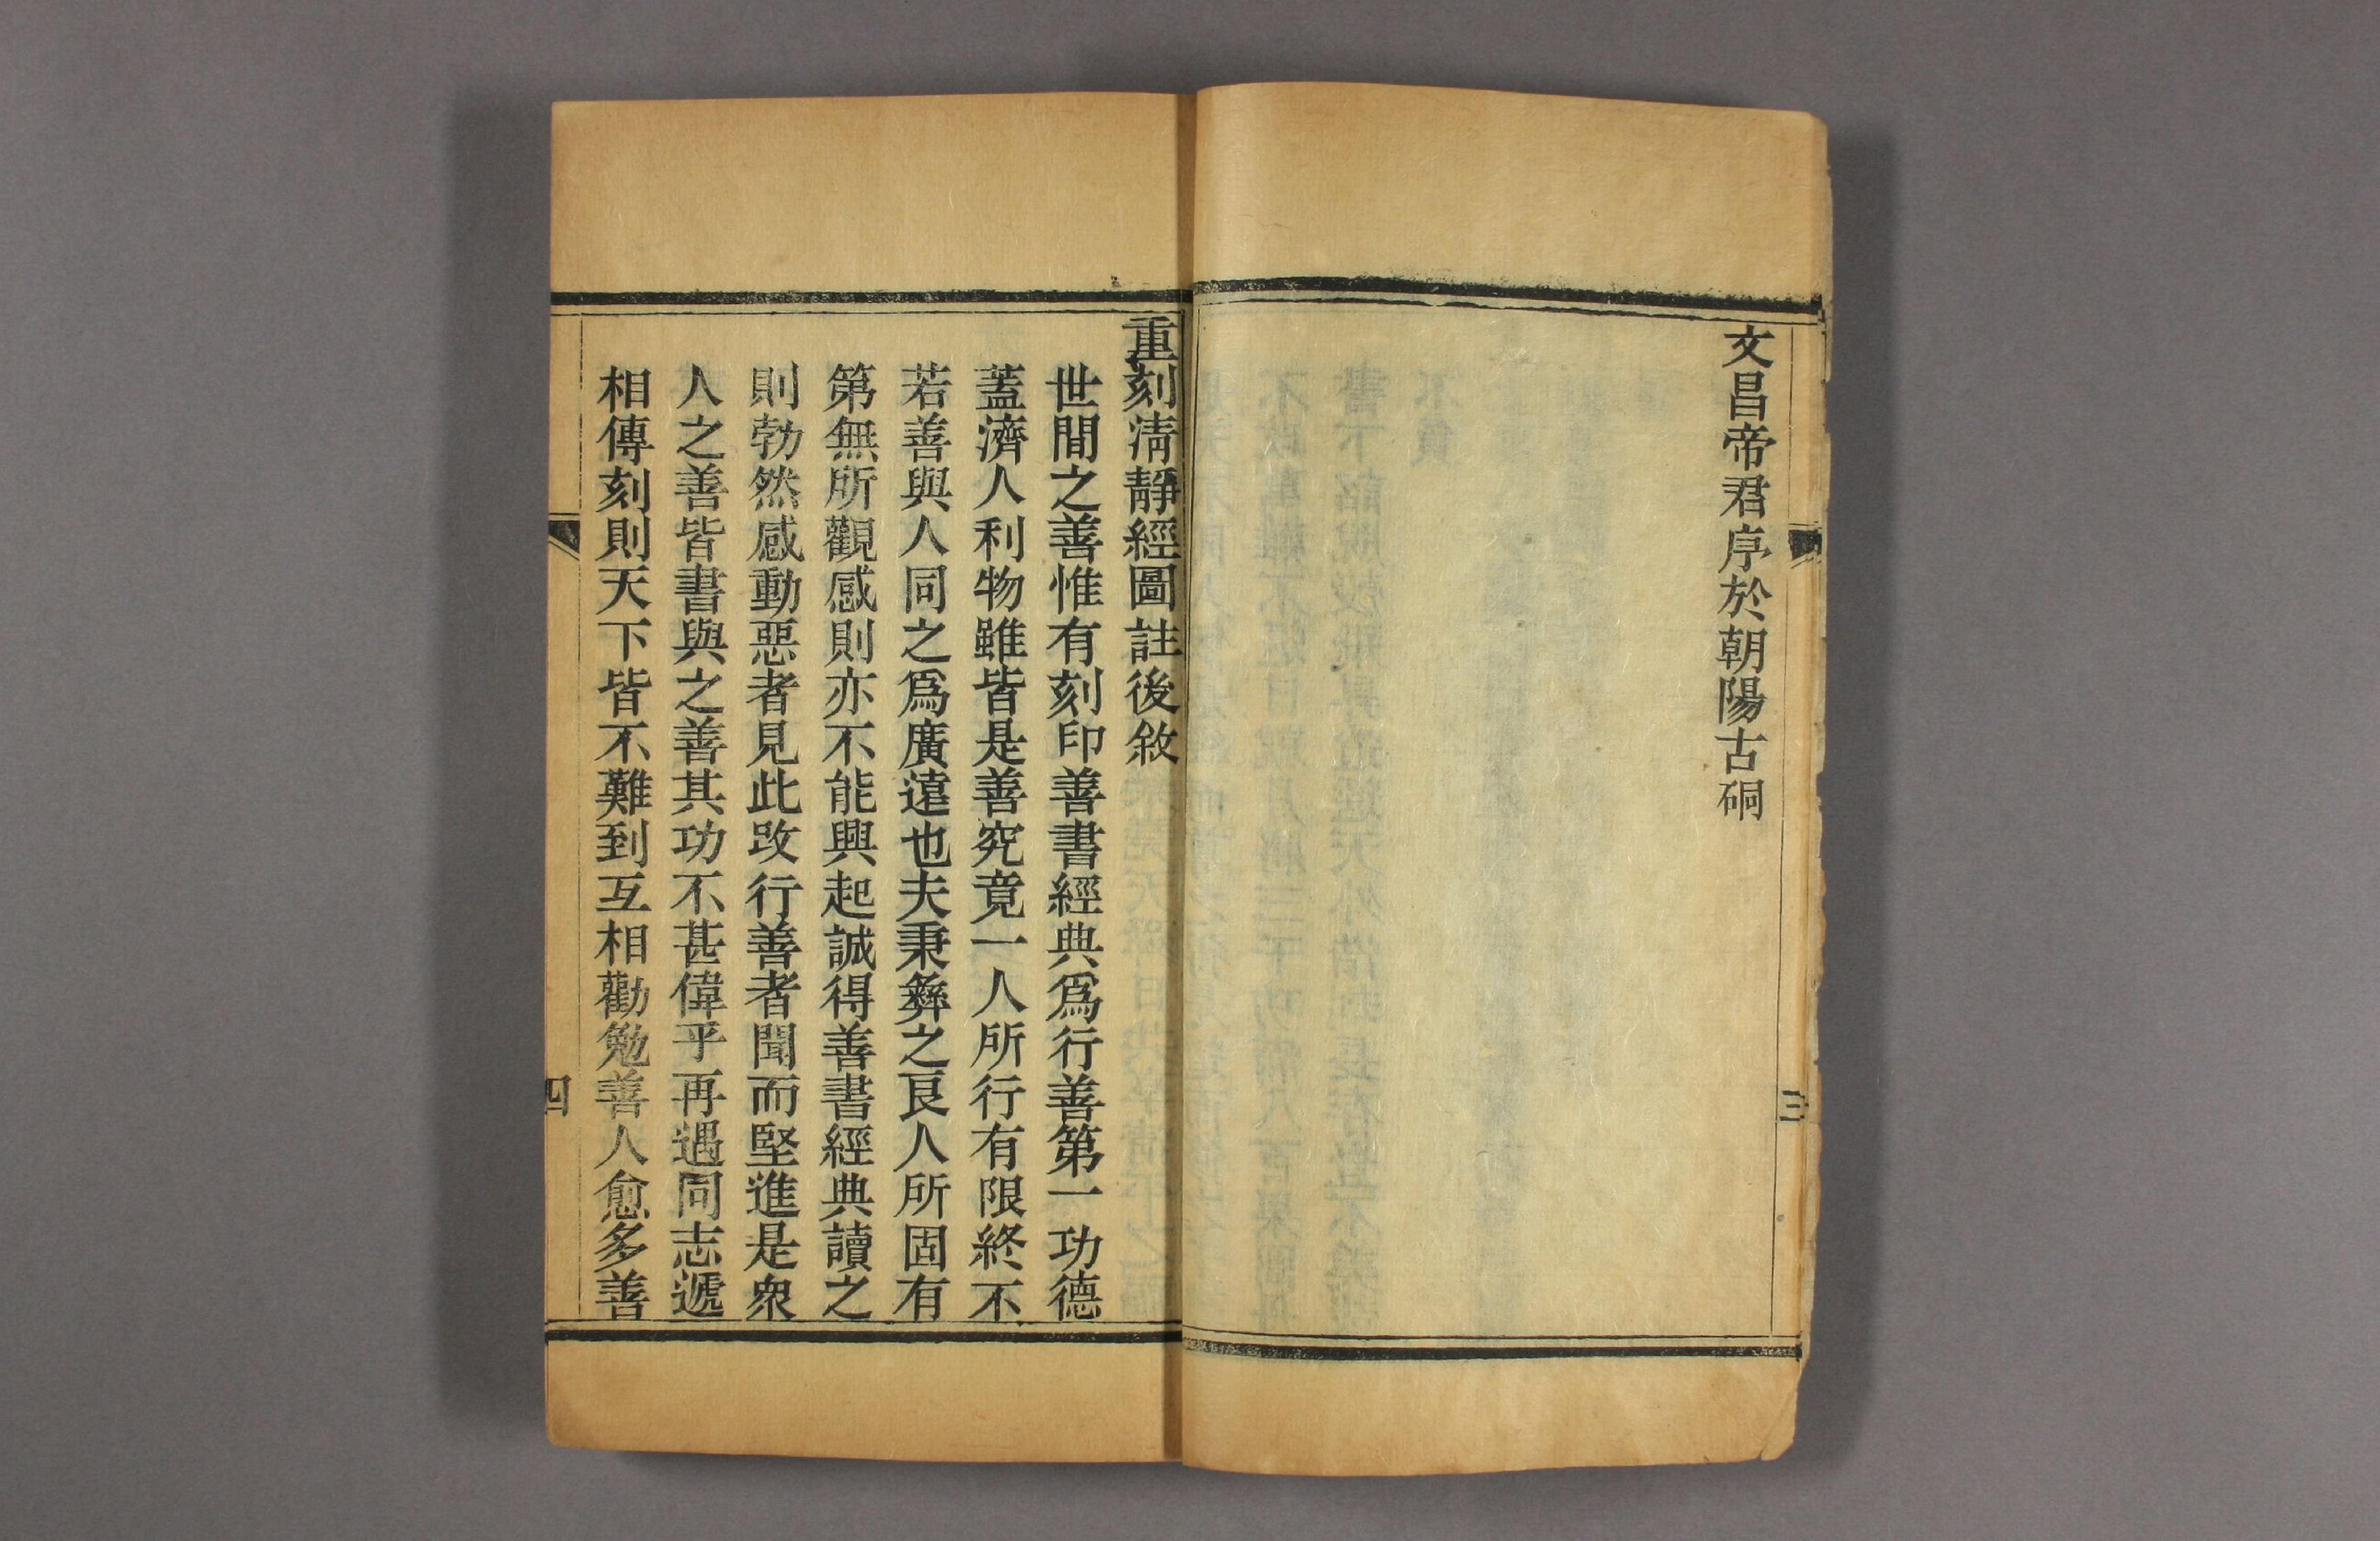 文昌帝君序於朝陽古硐
三
重刻淸靜經圖註後敘
世間之善惟有刻印善書經典爲行善第一功德
蓋濟人利物雖皆是善究竟一人所行有限終不
若善與人同之爲廣遠也夫秉彝之良人所固有
第無所觀感則亦不能興起誠得善書經典讀之
則勃然感動惡者見此改行善者聞而堅進是衆
人之善皆書與之善其功不甚偉乎再遇同志遞
相傳刻則天下皆不難到互相勸勉善人愈多善
四